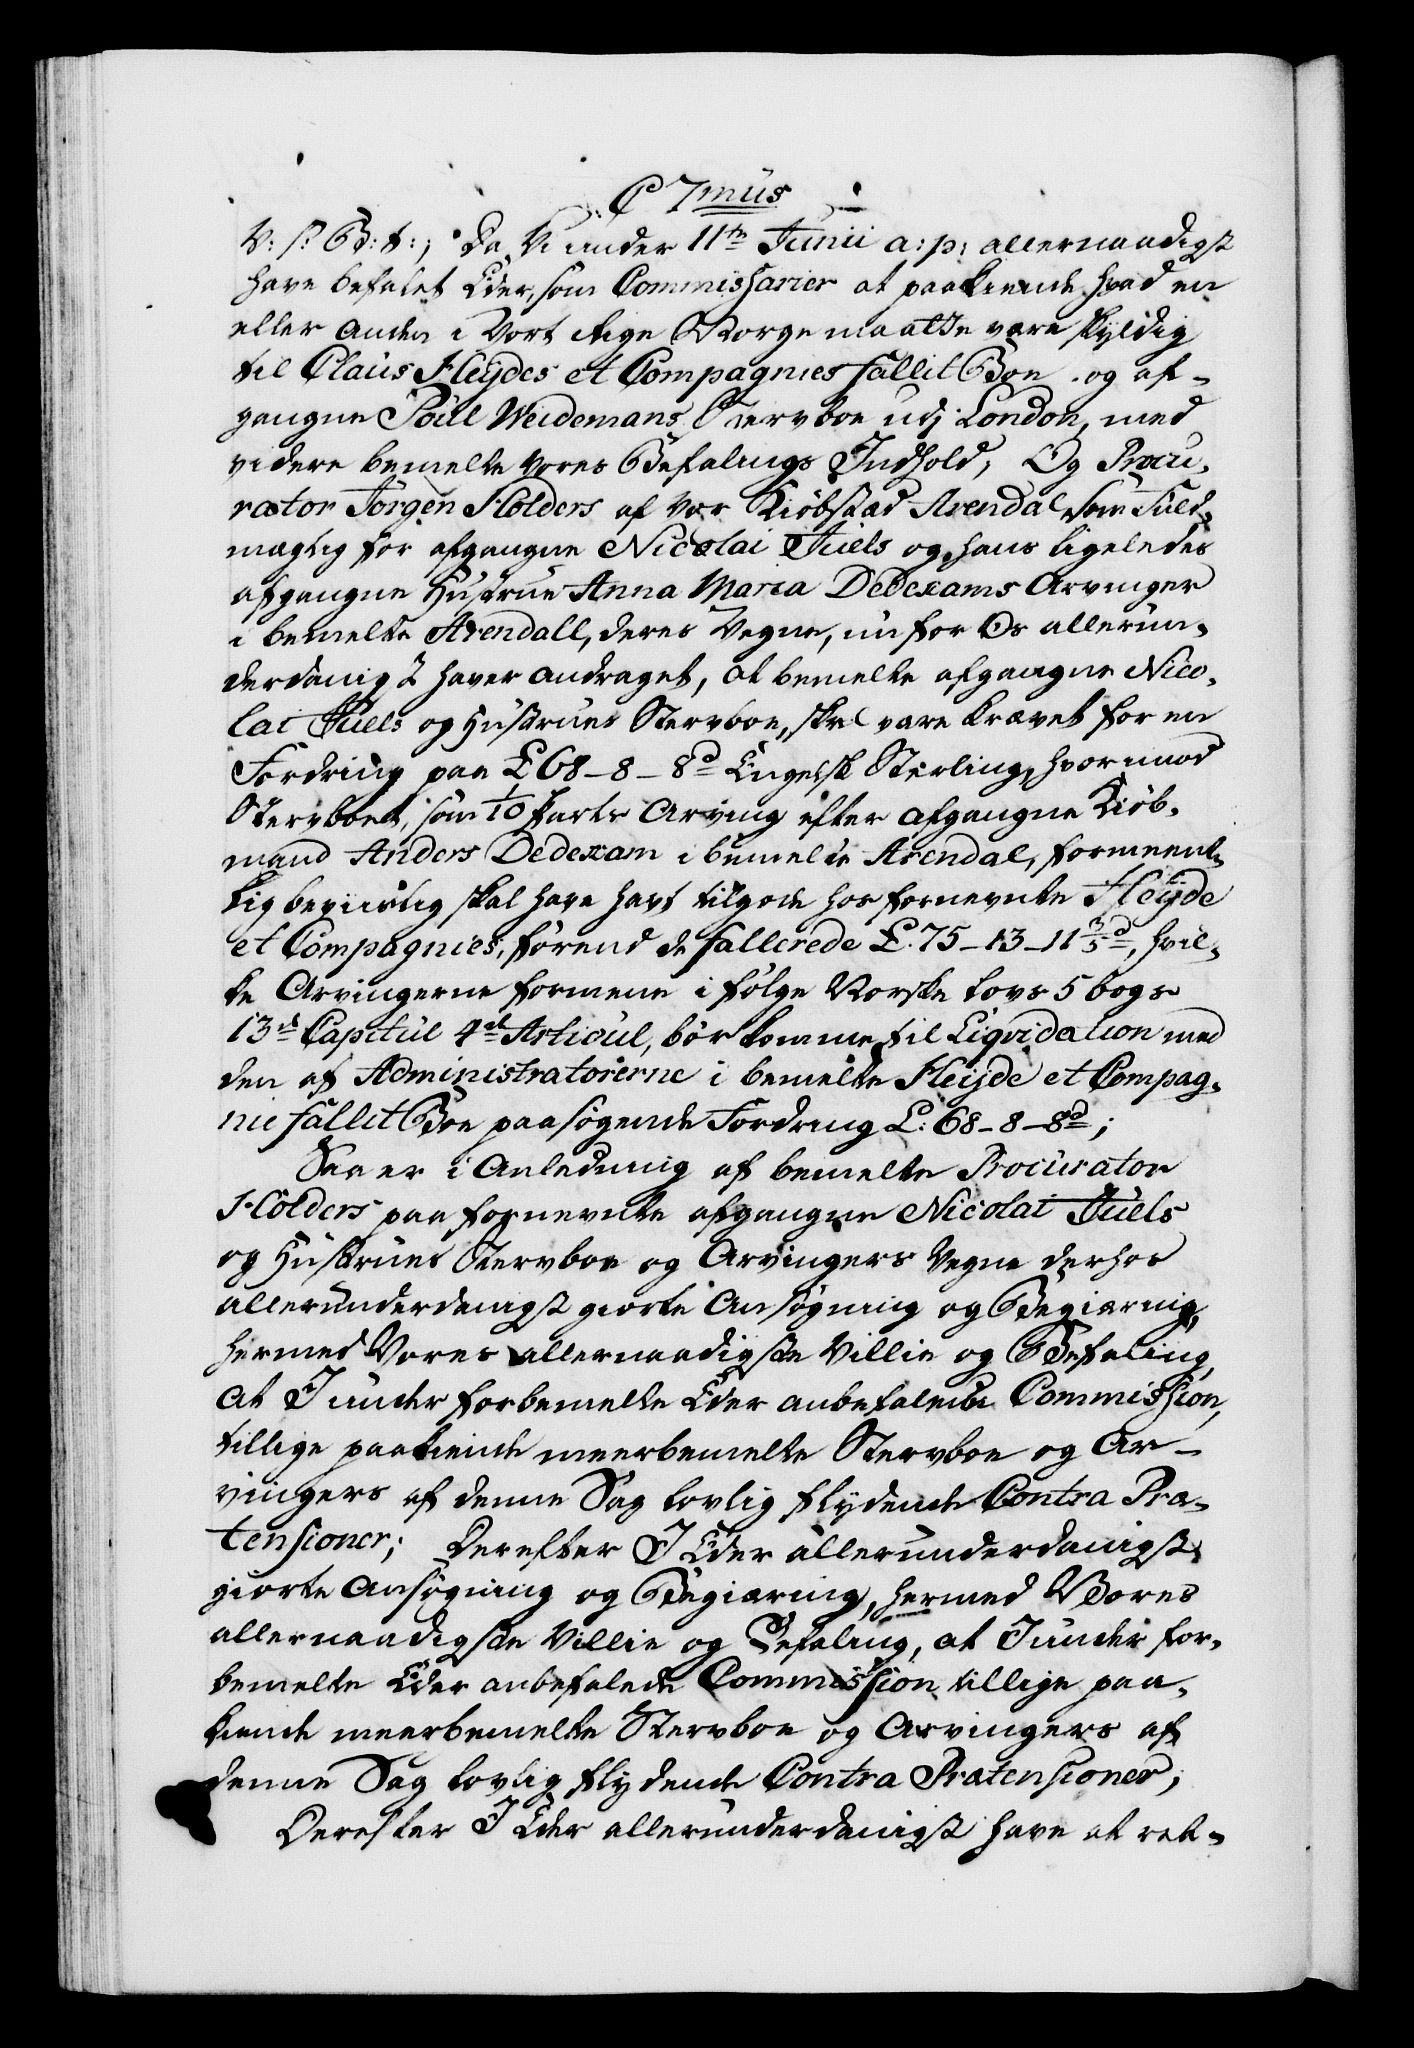 C 7mus
V: s: G: t:; Da Vi under 11te Junii a: p: allernaadigst
have befalet Eder, som Commissarier at paakiende hvad en
eller anden i Vort Rige Norge maatte være skyldig
til Claus Heÿdes et Compagnies fallit Boe og af-
gangne Poul Weidemans Stervboe udj London, med
videre bemelte vores Befalings Indhold, Og Procu-
rator Jørgen Holders af vor Kiøbstad Arendal som Fuld-
mægtig for afgangne Nicolai Juels og hans ligeledes
afgangne Hustrue Anna Maria Dedexams Arvinger
i bemelte Arendall, deres Vegne, nu for Os allerun-
derdanigst haver andraget, at bemelte afgangne Nico-
lai Juels og Hustrues Stervboe, skal være krævet for en
Fordring paa £ 68-8-8d Engelsk Sterling, hvorimod
Stervboet, som 1/10 Parts Arving efter afgangne Kiøb-
mand Anders Dedexam i bemelte Arendal, formeent-
lig beviislig skal have havt tilgode hos fornevnte Heÿde
et Compagnies, førend de fallerede £. 75-13-11 3/5d, hvil-
ke Arvingerne formene i følge Norske Lovs 5 bogs
13d Capitul 4de Articul, bør komme til Liqvidation med
den af Administratorerne i bemelte Heijde et Compag-
nie fallit Boe paasøgende Fordring £: 68-8-8d;
Saa er i Anledning af bemelte Procurator
Holders paa fornevnte afgangne Nicolai Juels
og Hustrues Stervboe og Arvingers Vegne derhos
allerunderdanigst giorte Ansøgning og Begiæring,
hermed Vores allernaadigste Villie og Befaling,
at I under forbemelte Eder anbefalede Commission,
tillige paakiende meerbemelte Stervboe og Ar-
vingers af denne Sag lovlig flydende Contra Præ-
tensioner; Derefter I Eder allerunderdanigst
giorte Ansøgning og Begiæring, hermed Vores
allernaadigste Villie og Befaling, at I under for-
bemelte Eder anbefalede Commission tillige paa-
kiende meerbemelte Stervboe og Arvingers af
denne Sag lovlig flydende Contra Prætensioner;
Derefter I Eder allerunderdanigst have at ret-